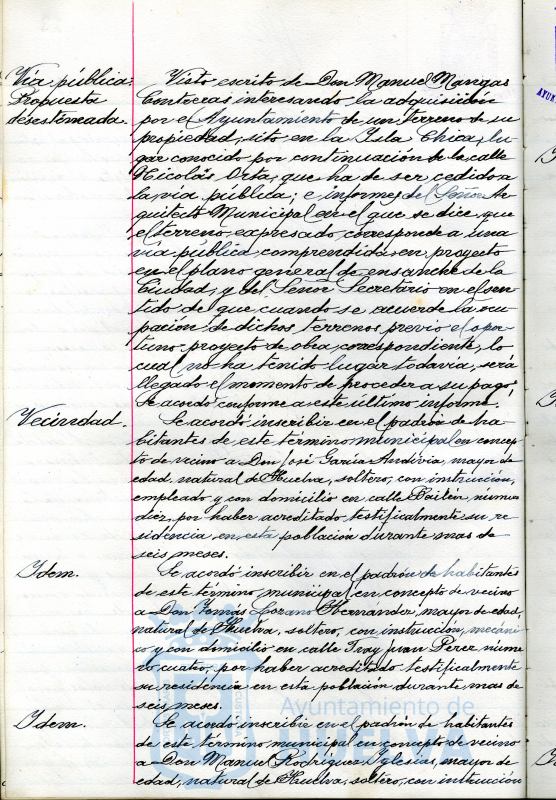 Vía pública:
Propuesta
desestimada.
Visto escrito de Don Manuel Mangas
Contreras interesando la adquisición
por el Ayuntamiento de un terreno de su
propiedad, sito en la Isla Chica, lu-
gar conocido por continuación de la calle
Nicolás Orta, que ha de ser cedido a
la vía pública; e informes del Señor Ar-
quitecto Municipal en el que se dice, que
el terreno expresado corresponde a una
vía pública comprendida en proyecto
en el plano general de ensanche de la
Ciudad, y del Señor Secretario en el sen-
tido de que, cuando se acuerde la ocu-
pación de dichos terrenos previo el opor-
tuno proyecto de obra correspondiente, lo
cual no ha tenido lugar todavía, será
llegado el momento de proceder a su pago,
Se acordó conforme a este último informe.
Vecindad.
Se acordó inscribir en el padrón de ha-
bitantes de este término municipal en concep-
to de vecino a Don José García Andivia, mayor de
edad, natural de Huelva, soltero, con instrucción,
empleado y con domicilio en calle Bailén, número
diez, por haber acreditado testificalmente su re-
sidencia en esta población durante mas de
seis meses.
Idem.
Se acordó inscribir en el padrón de habitantes
de este término municipal en concepto de vecino
a Don Tomás Lozano Hernander, mayor de edad,
natural de Huelva, soltero, con instrucción, mecáni-
co y con domicilio en calle Fray Juan Pérez núme-
ro cuatro, por haber acreditado testificalmente
su residencia en esta población durante mas de
seis meses.
Idem.
Se acordó inscribir en el padrón de habitantes
de este término municipal en concepto de vecino
a Don Manuel Rodríguez Iglesias, mayor de
edad, natural de Huelva, soltero, con instrucción
Ayuntamiento de
HUELVA
AYUN